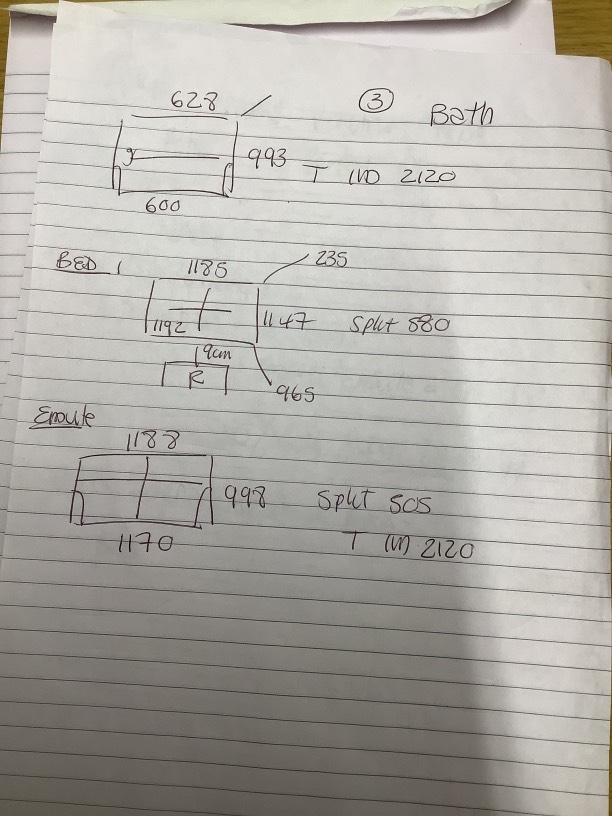 ③ Bath
628
993 T IN 2120
600
BED 1 1185 235
1192 1147 Split 580
9cm
R 965
Ensuite
1188
998 Split 505
1170 T IN 2120